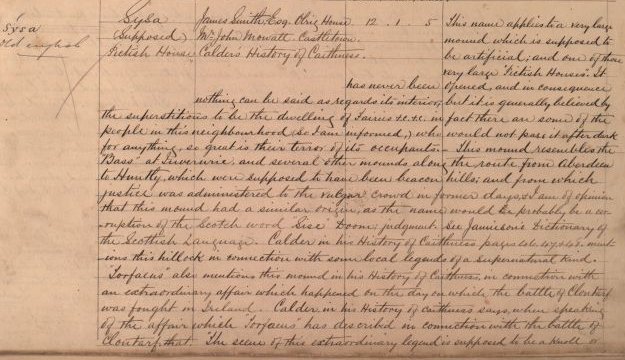 Sysa James Smith Esq. Olrig House 12 . 1 . 5 This name applies to a very large
Sysa Supposed Mr. John Mowatt Castletown. mound which is supposed to
Old english Pictish House Calder's History of Caithness. be artificial; and one of those
very large "Pictish Houses". It
has never been opened, and in consequence
nothing can be said as regards its interior, but it is generally believed by
the superstitious to be the dwelling of Fairies &c. &c. in fact there are some of the
people in this neighbourhood (so I am informed,) who would not pass it after dark
for anything, so great is their terror of its occupants. This mound resembles the
"Bass" at Inverurie and several other mounds along the route from Aberdeen
to Huntly, which were supposed to have been beacon hills; and from which
justice was administered to the vulgar crowd in former days, & I am of opinion
that this mound had a similar origin, as the name would be probably be a cor-
ruption of the Scotch word "Sise" Doom, judgment. See Jamieson's Dictionary of
the Scottish Language. Calder in his History of Caithness pages 46. 47. & 48. ment-
ions this hillock in connection with some local legends of a supernatural kind.
"Torfaeus" also mentions this mound in his History of Caithness, in connection with
an extraordinary affair which happened on the day on which the battle of Clontarf
was fought in Ireland. Calder in his History of Caithness says, when speaking
of the affair which Torfaeus has described in connection with the battle of
Clontarf, that "The scene of this extraordinary legend is supposed to be a knoll or